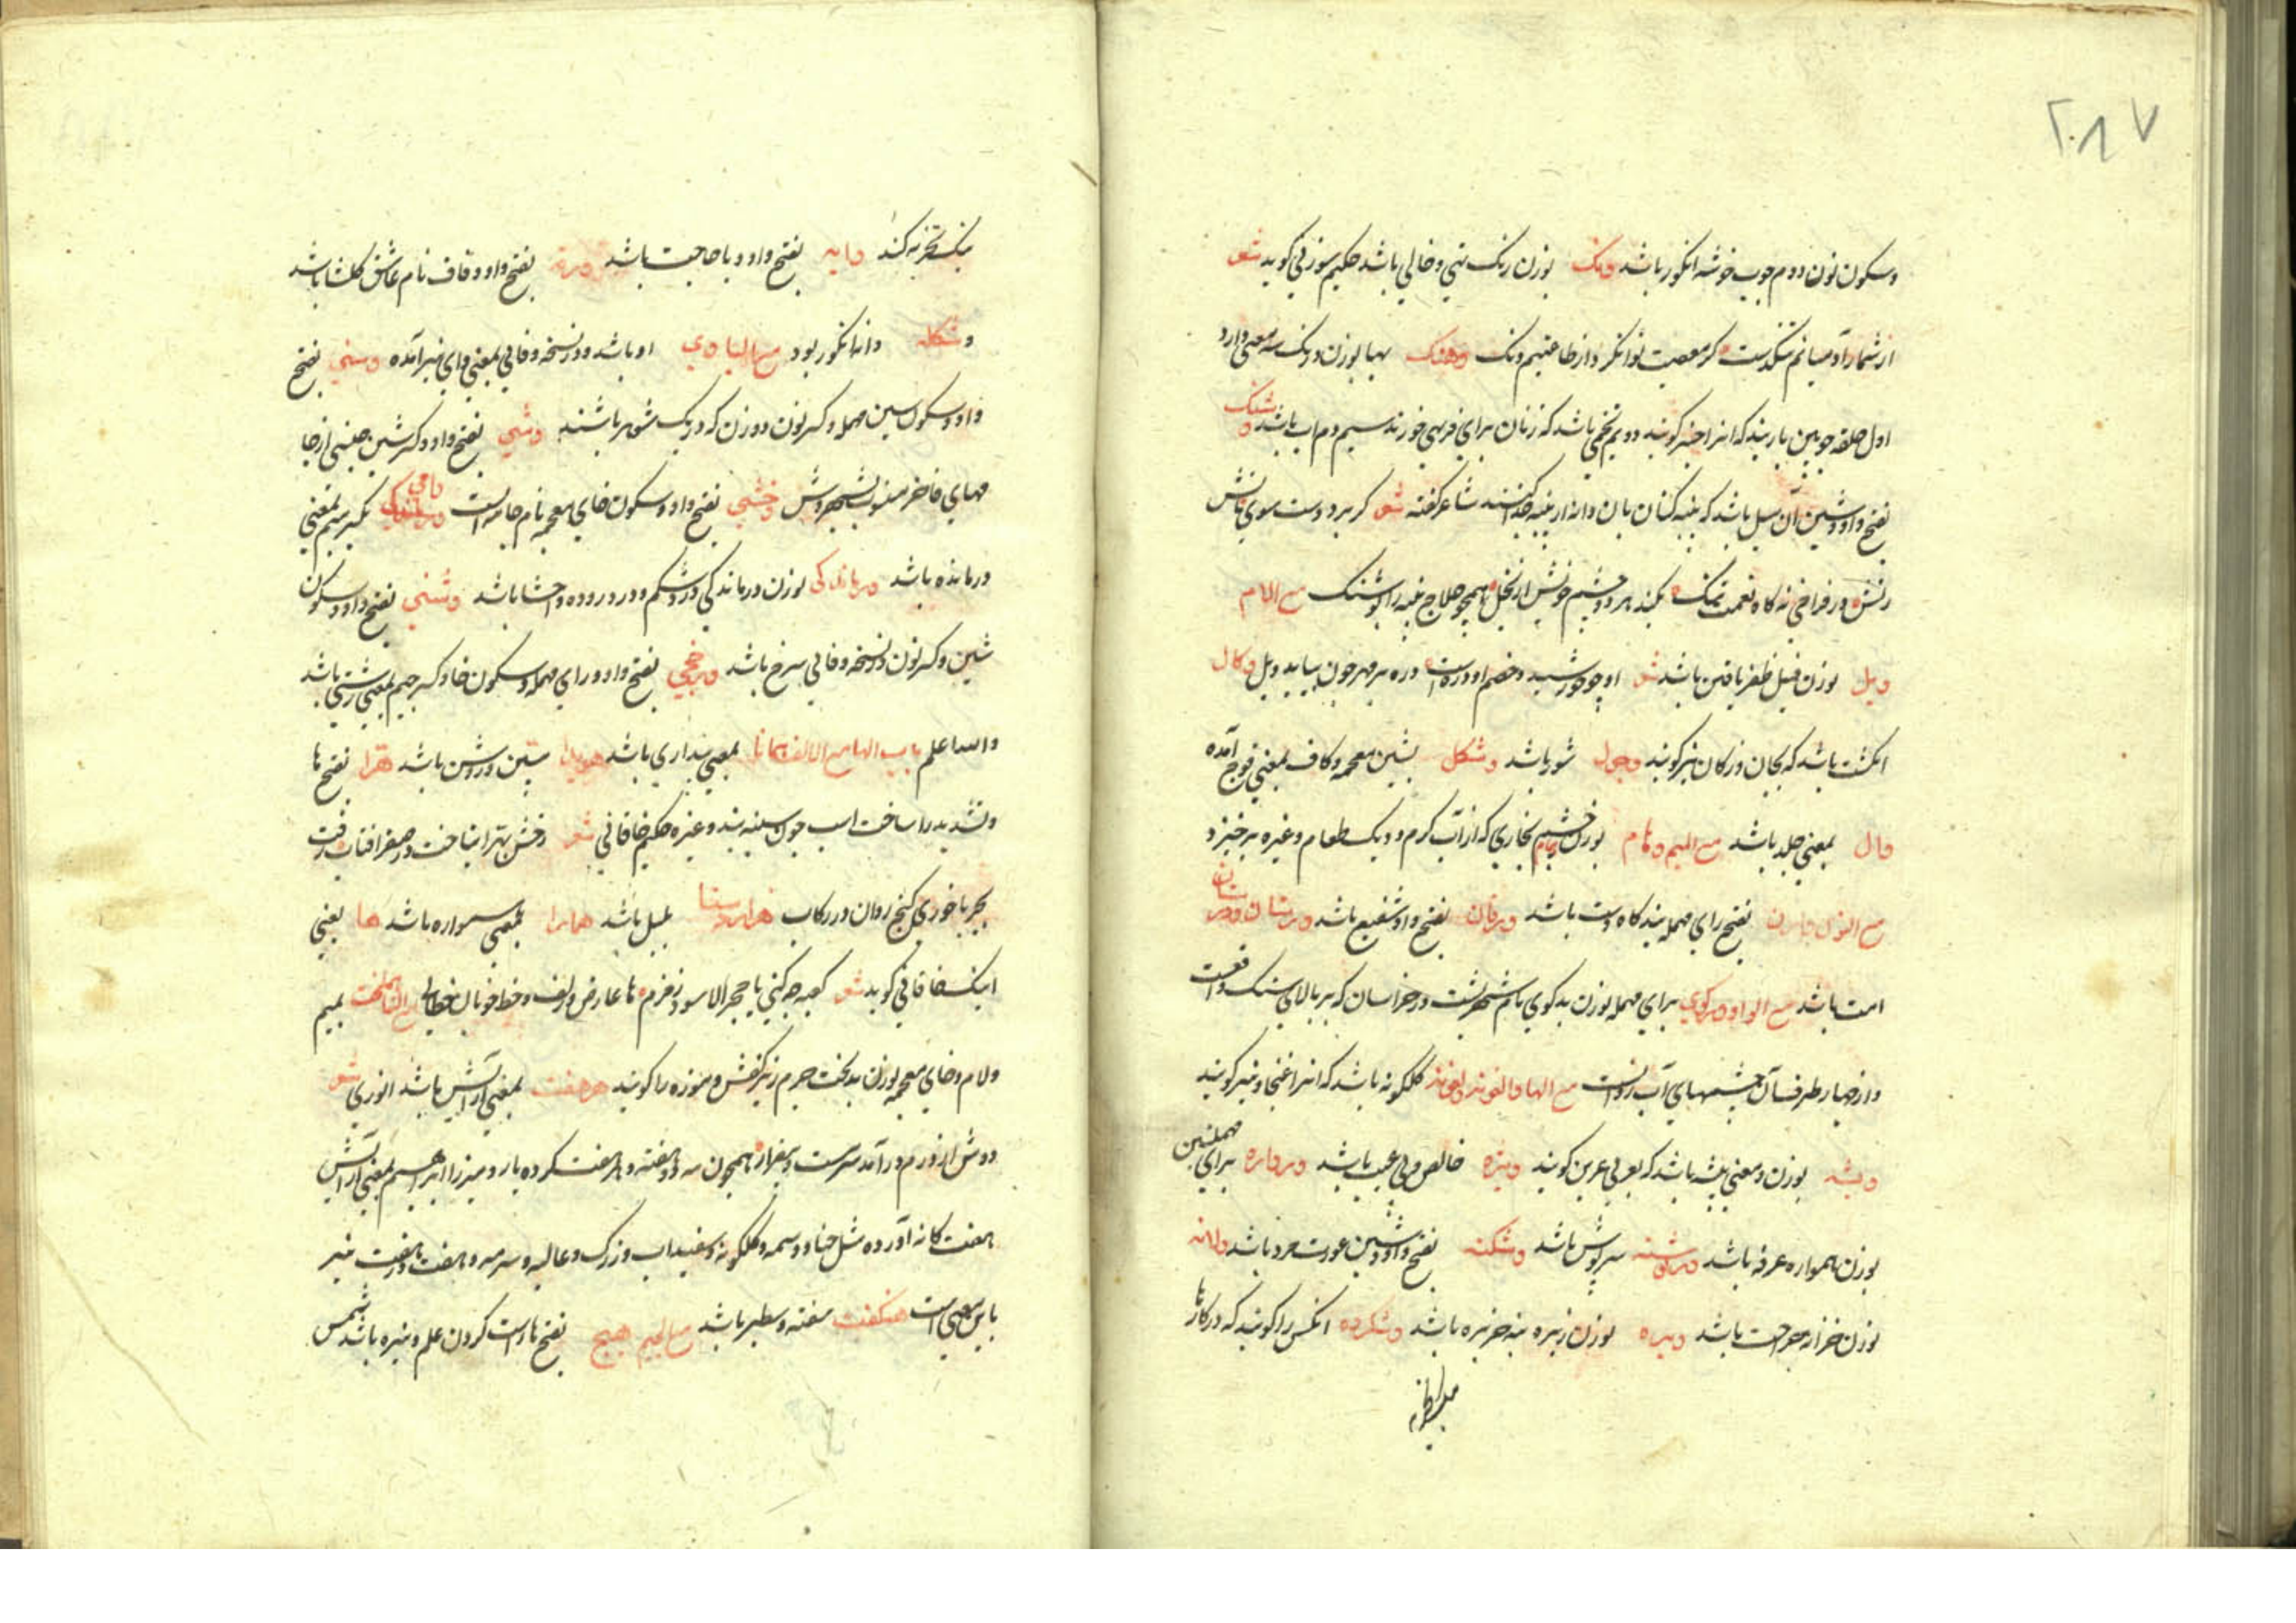 ۲۰۸۷
وسکون نون دوم چوب خوشه انکور باشد ونک بوزن رنک تهی و خالی باشد حکیم سوزنی کوید شعر
از شمار آدمیانم تنکدست کر معصیت توانکر و از طاعتیم ونک وهنک بها بوزن درنک سه معنی دارد
اول حلقه چوبین باربند که انرا کویند دویم تخمی باشد که زنان برای فربهی خورند سیم دم اب باشد وشنک
بفتح واو وشین آن میل باشد که پنبه کنان بان دانه از پنبه جدا کنند شاعر کفته شعر کر برد دست سوی
در فراخی نه کاه نعمت تنک بکند هر دو چشم خویش از بخل همچو حلاج پنبه را بوشنک مع اللام
ویل بوزن فیل ظفر یافتن باشد شعر او چو خورشید و خصم او ذره است ذره بر مهر چون بیابد ویل وکال
انکشت باشد که بجان وزکان نیز کویند وچول شور باشد وشکل بشین معجمه وکاف بمعنی قوچ آمده
وال بمعنی جلد باشد مع المیم وهام بوزن بخاری که از آب کرم و دیک طعام وغیره برخیزد
مع النون وارن بفتح رای مهمله بندکاه دست باشد ورفان بفتح واو شفیع باشد ورستان
امت باشد مع الواو ورکوی برای مهمله بوزن بدکوی نام شهریست در خراسان که بر بالای سنک واقعست
و از چهار طرف آن چشمهای آب روانست مع الها والغونه ولغونه کلکونه باشد که انرا غنجار نیز کویند
ویشه بوزن ومعنی بیشه باشد که بعربی عرین کویند ویژه خالص وبی عیب باشد ورواره برای مهملتین
بوزن همواره غرفه باشد ورپوشنه سرپوش باشد وشکنه بفتح واو وشین عورت مرد باشد ولانه
بوزن خزانه جراحت باشد ویره بوزن زیره خربزه باشد وشکرده انکس را کویند که در کارها
نیک تجربه کند وایه بفتح واو و با حاجت باشد ورقه بفتح واو وقاف نام عاشق کلشاه باشد
وشکله دانه انکور بود مع الیا وی او باشد ودر نسخه وفائی بمعنی وای نیز آمده وسنی بفتح
واو وسکون سین مهمله وکسر نون دو زن که در یک شوهر باشند وشی بفتح واو وکسر شین جنسی از جا
مهای فاخر منسوب بشهر وش وخشی بفتح واو وسکون خای معجمه نام جامه است وامی بکسر میم بمعنی
درمانده باشد ورماندکی بوزن درماندکی درد شکم و درد روده واحشا باشد وشنی بفتح واو وسکون
شین وکسر نون در نسخه وفائی سرخ باشد ورخجی بفتح واو ورای مهمله وسکون خا وکسر جیم بمعنی زشتی باشد
والله اعلم باب الها مع الالف همانا بمعنی پنداری باشد هویدا مبین وروشن باشد هرا بفتح ها
وتشدید را ساخت اسب چون سینه بند وغیره حکیم خاقانی شعر رخش بهرا بتاخت بر صفر افتاب رفت
بچرب اخوری کنج روان در رکاب هزاردستا بلبل باشد همارا بمعنی همواره باشد ها یعنی
اینک خاقانی کوید شعر کعبه چه کنی با حجر الاسود وزمزم ها عارض وزلف وخط خوبان خطائی مع التا هملخت بمیم
ولام وخای معجمه بوزن بدبخت چرم زیر کفش وموزه را کویند هرهفت بمعنی آرایش باشد انوری شعر
دوش از درم درآمد سرمست وبیقرار همچون مه دو هفته وهر هفت کرده یار ومیرزا ابراهیم بمعنی آرایش
هفت کانه آورده مثل حنا و وسمه وکلکونه وسفیداب وزرک وغالیه وسرمه وهفت وهفت نیز
باین معنی است هنکفت سفته وسطبر باشد مع الجیم هیج بفتح ها راست کردن علم ونیزه باشد شمس